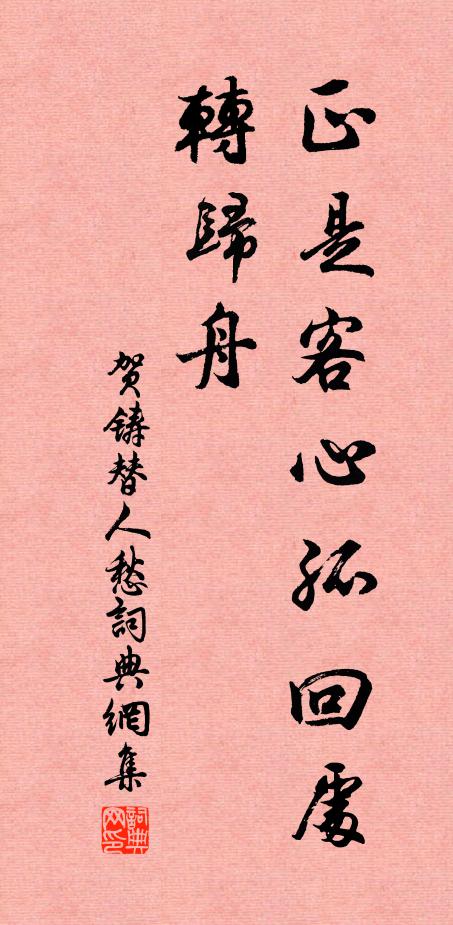 正是客心孤迴處
轉歸舟
贺鑄替人愁詞典網集
詞典网印